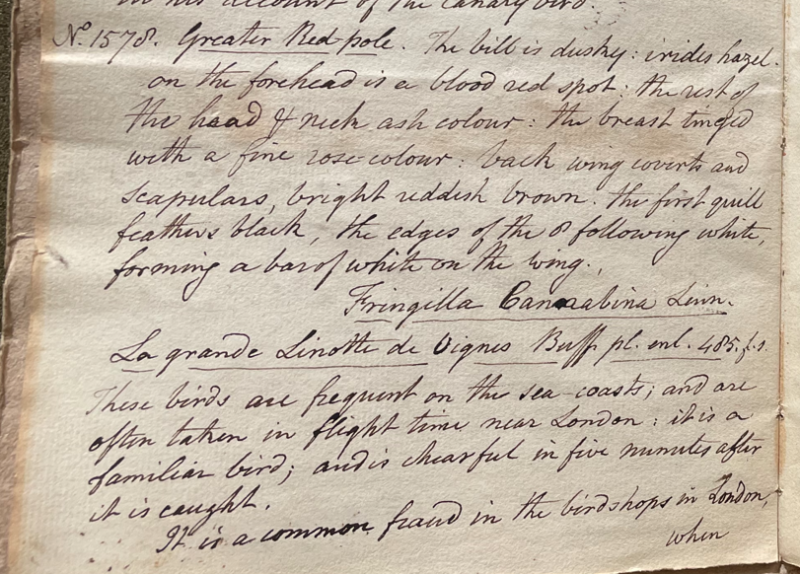 in his account of the canary bird.
No. 1578. Greater Redpole. The bill is dusky: irides hazel.
on the forehead is a blood red spot: the rest of
the head & neck ash colour: the breast tinged
with a fine rose-colour: back wing coverts and
scapulars, bright reddish brown. the first quill
feathers black, the edges of the 8 following white,
forming a bar of white on the wing.
Fringilla Cannabina Linn.
La grande Linotte de Vignes Buff. pl. enl. 485. f. 1.
These birds are frequent on the sea coasts; and are
often taken in flight time near London: it is a
familiar bird; and is chearful in five minutes after
it is caught.
It is a common fraud in the birdshops in London,
when